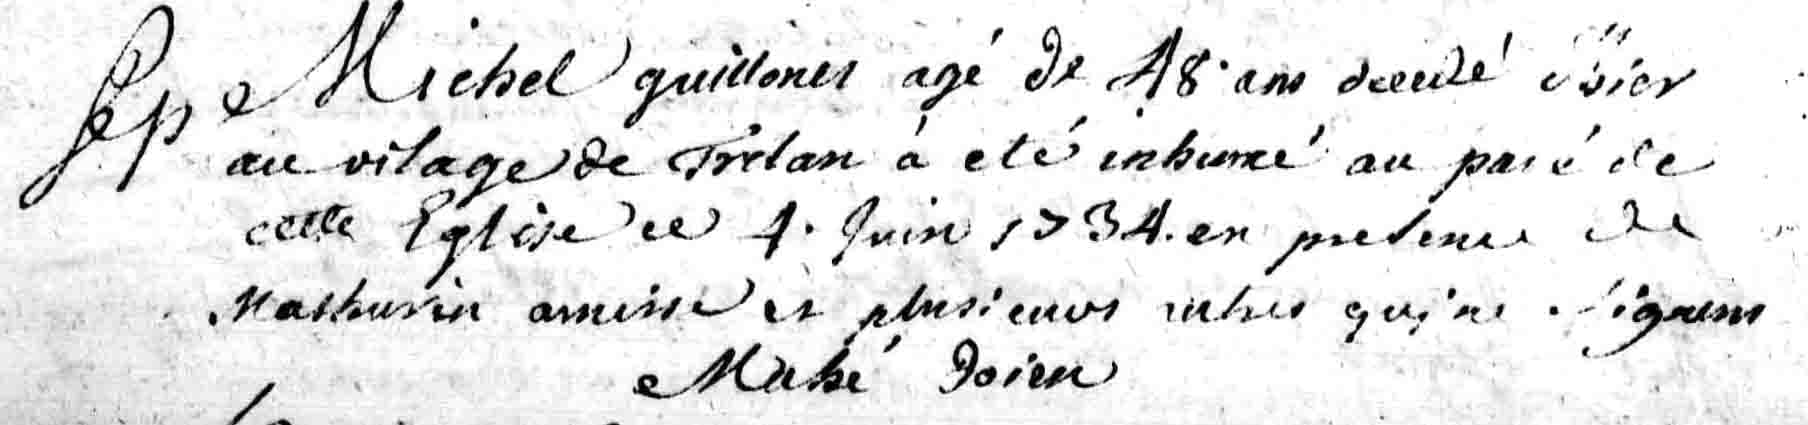 Sep Michel guillonet agé de 48 ans decedé hier
au vilage de Trelan à eté inhumé au pavé de
cette Eglise ce 4. Juin 1734. en presence de
Mathurin amisse et plusieurs autres qui ne signent
Mahé Doien